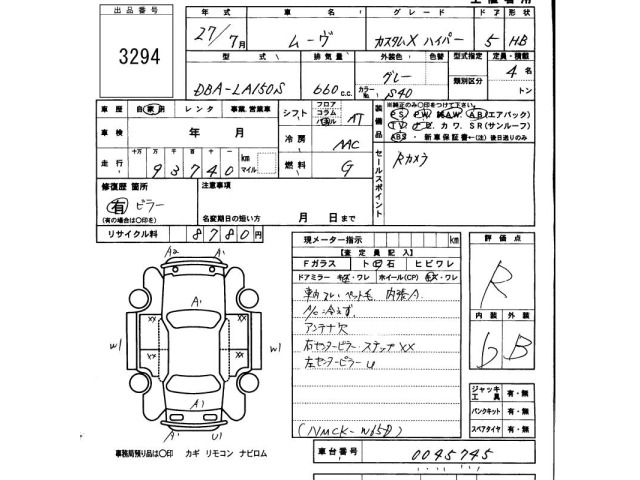 出品番号
3294
年式 車名 グレード ドア 形状
27/7月 ムーヴ カスタムX ハイパー 5 HB
型式 排気量 外装色 色替 型式指定 定員・積載
DBA-LA150S 660c.c. グレー 類別区分 4名
カラーNo. S40 トン
車歴 自家用 レンタ 事業.営業車 シフト フロア コラム パネル AT
車検 年 月 冷房 AAC
走行 十万 万 千 百 十 km マイル
93740
燃料 G
装備品 ※純正のみ〇印をつけて下さい。
PS PW 純AW AB(エアバック)
TV ナビ カワ SR(サンルーフ)
ABS ・新車保証書←(注)後日送りのみ
セールスポイント
Rカメラ
修復歴 箇所 注意事項
有 ピラー
(有の場合は〇印を) 名変期日の短い方 月 日まで
リサイクル料 8780円
現メーター指示 km
【査定員記入】
Fガラス トビ石 ヒビワレ
ドアミラー キズ・ワレ ホイール(CP) キズ・ワレ
車内アレ ペット毛 内張A
A/C冷えず
アンテナ欠
右センターピラー ステップ XX
左センターピラー U
(NMCK-W15D)
評価点
R
内装 外装
6 B
ジャッキ工具 有・無
パンクキット 有・無
スペアタイヤ 有・無
A2 A1
A1
XX XX
W1 W1
XX XX
A1
A1 U1
事務局預り品は〇印 カギ リモコン ナビロム
車台番号 0045745